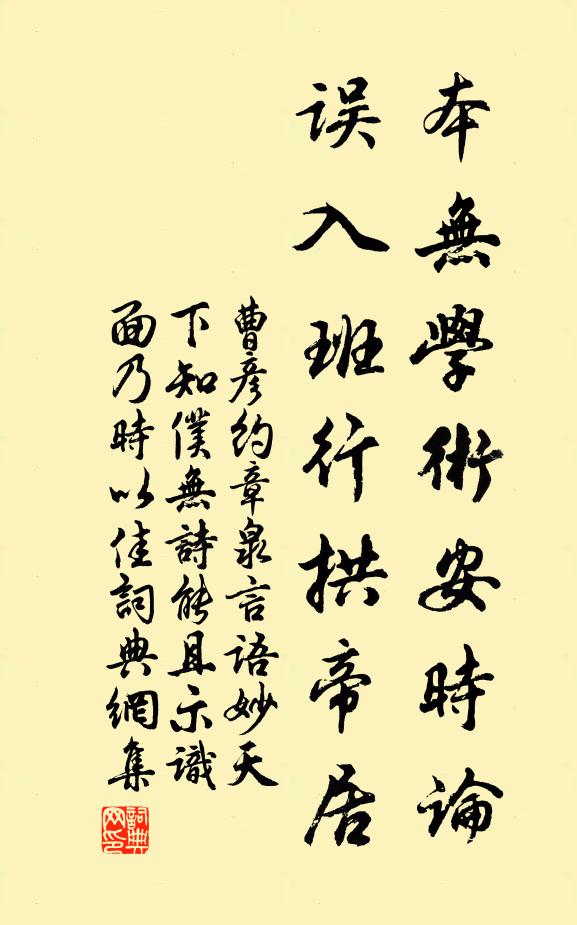 本無學術安時論
误入班行拱帝居
曹彦約章泉言語妙天
下知僕無詩能且示識
面乃時以佳詞典網集
詞典
网印